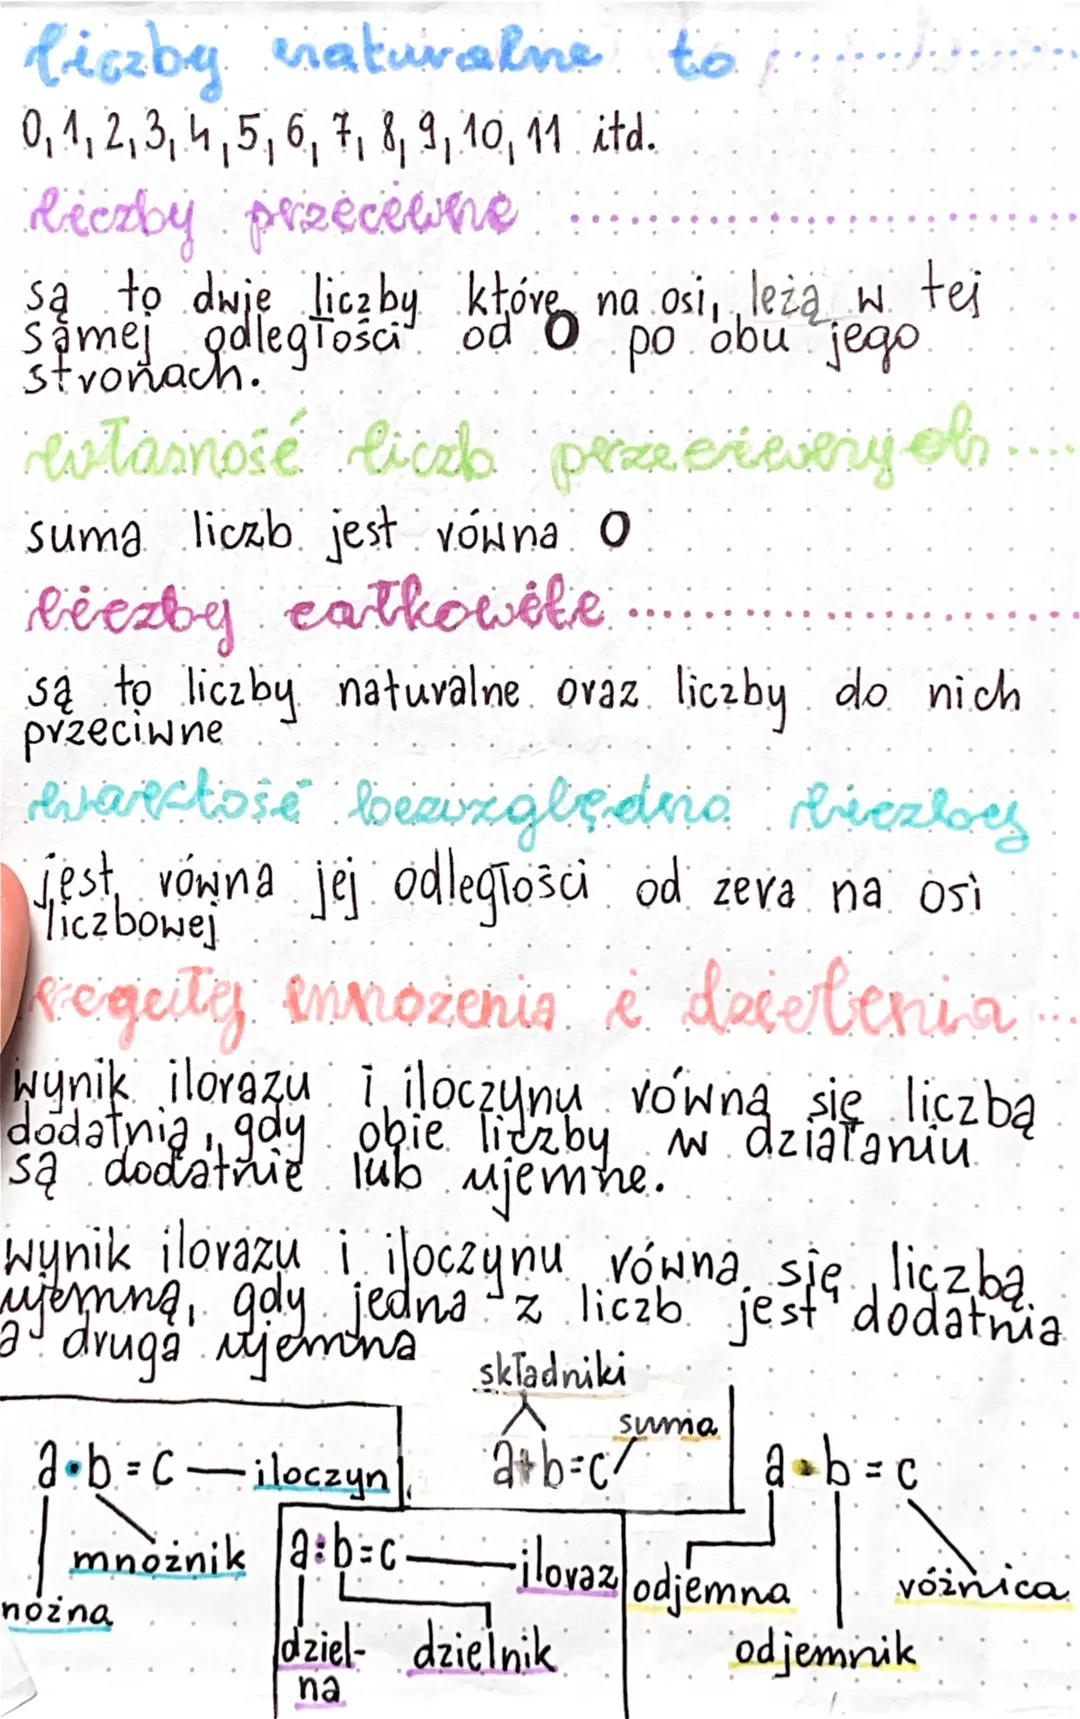 liczby naturalne to
0, 1, 2, 3, 4, 5, 6, 7, 8, 9, 10, 11 itd.
liczby przeciwne
są to dwie liczby które na osi, leżą w tej
samej odległości od 0 po obu jego
stronach.
własność liczb przeciwnych
suma liczb jest równa 0
liczby całkowite
są to liczby naturalne oraz liczby do nich
przeciwne
wartość bezwzględna liczby
jest równa jej odległości od zera na osi
liczbowej
reguły mnożenia i dzielenia
wynik ilorazu i iloczynu równa się liczbą
dodatnią, gdy obie liczby w działaniu
są dodatnie lub ujemne.
wynik ilorazu i iloczynu równa się liczbą
ujemną, gdy jedna z liczb jest dodatnia
a druga ujemna
składniki
suma
a•b=c — iloczyn
a+b=c
a-b=c
mnożnik
nożna
a:b=c — iloraz
dziel-
na
dzielnik
odjemna
różnica
odjemnik